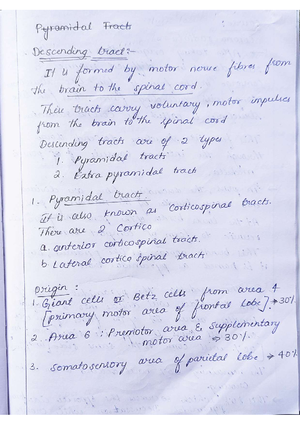 Pyramidal Tract
Descending tract:-
It is formed by motor nerve fibres from
the brain to the spinal cord.
These tracts carry voluntary, motor impulses
from the brain to the spinal cord
Descending tracts are of 2 types
1. Pyramidal tract
2. Extra pyramidal tract
1. Pyramidal tract
It is also known as corticospinal tracts.
There are 2 Cortico
a. anterior corticospinal tract.
b Lateral cortico spinal tract
Origin :
1. Giant cells or Betz cells from area 4
[primary motor area of frontal lobe] → 30%
2. Area 6 : Premotor area & Supplementary
motor area → 30%
3. Somatosensory area of parietal lobe → 40%